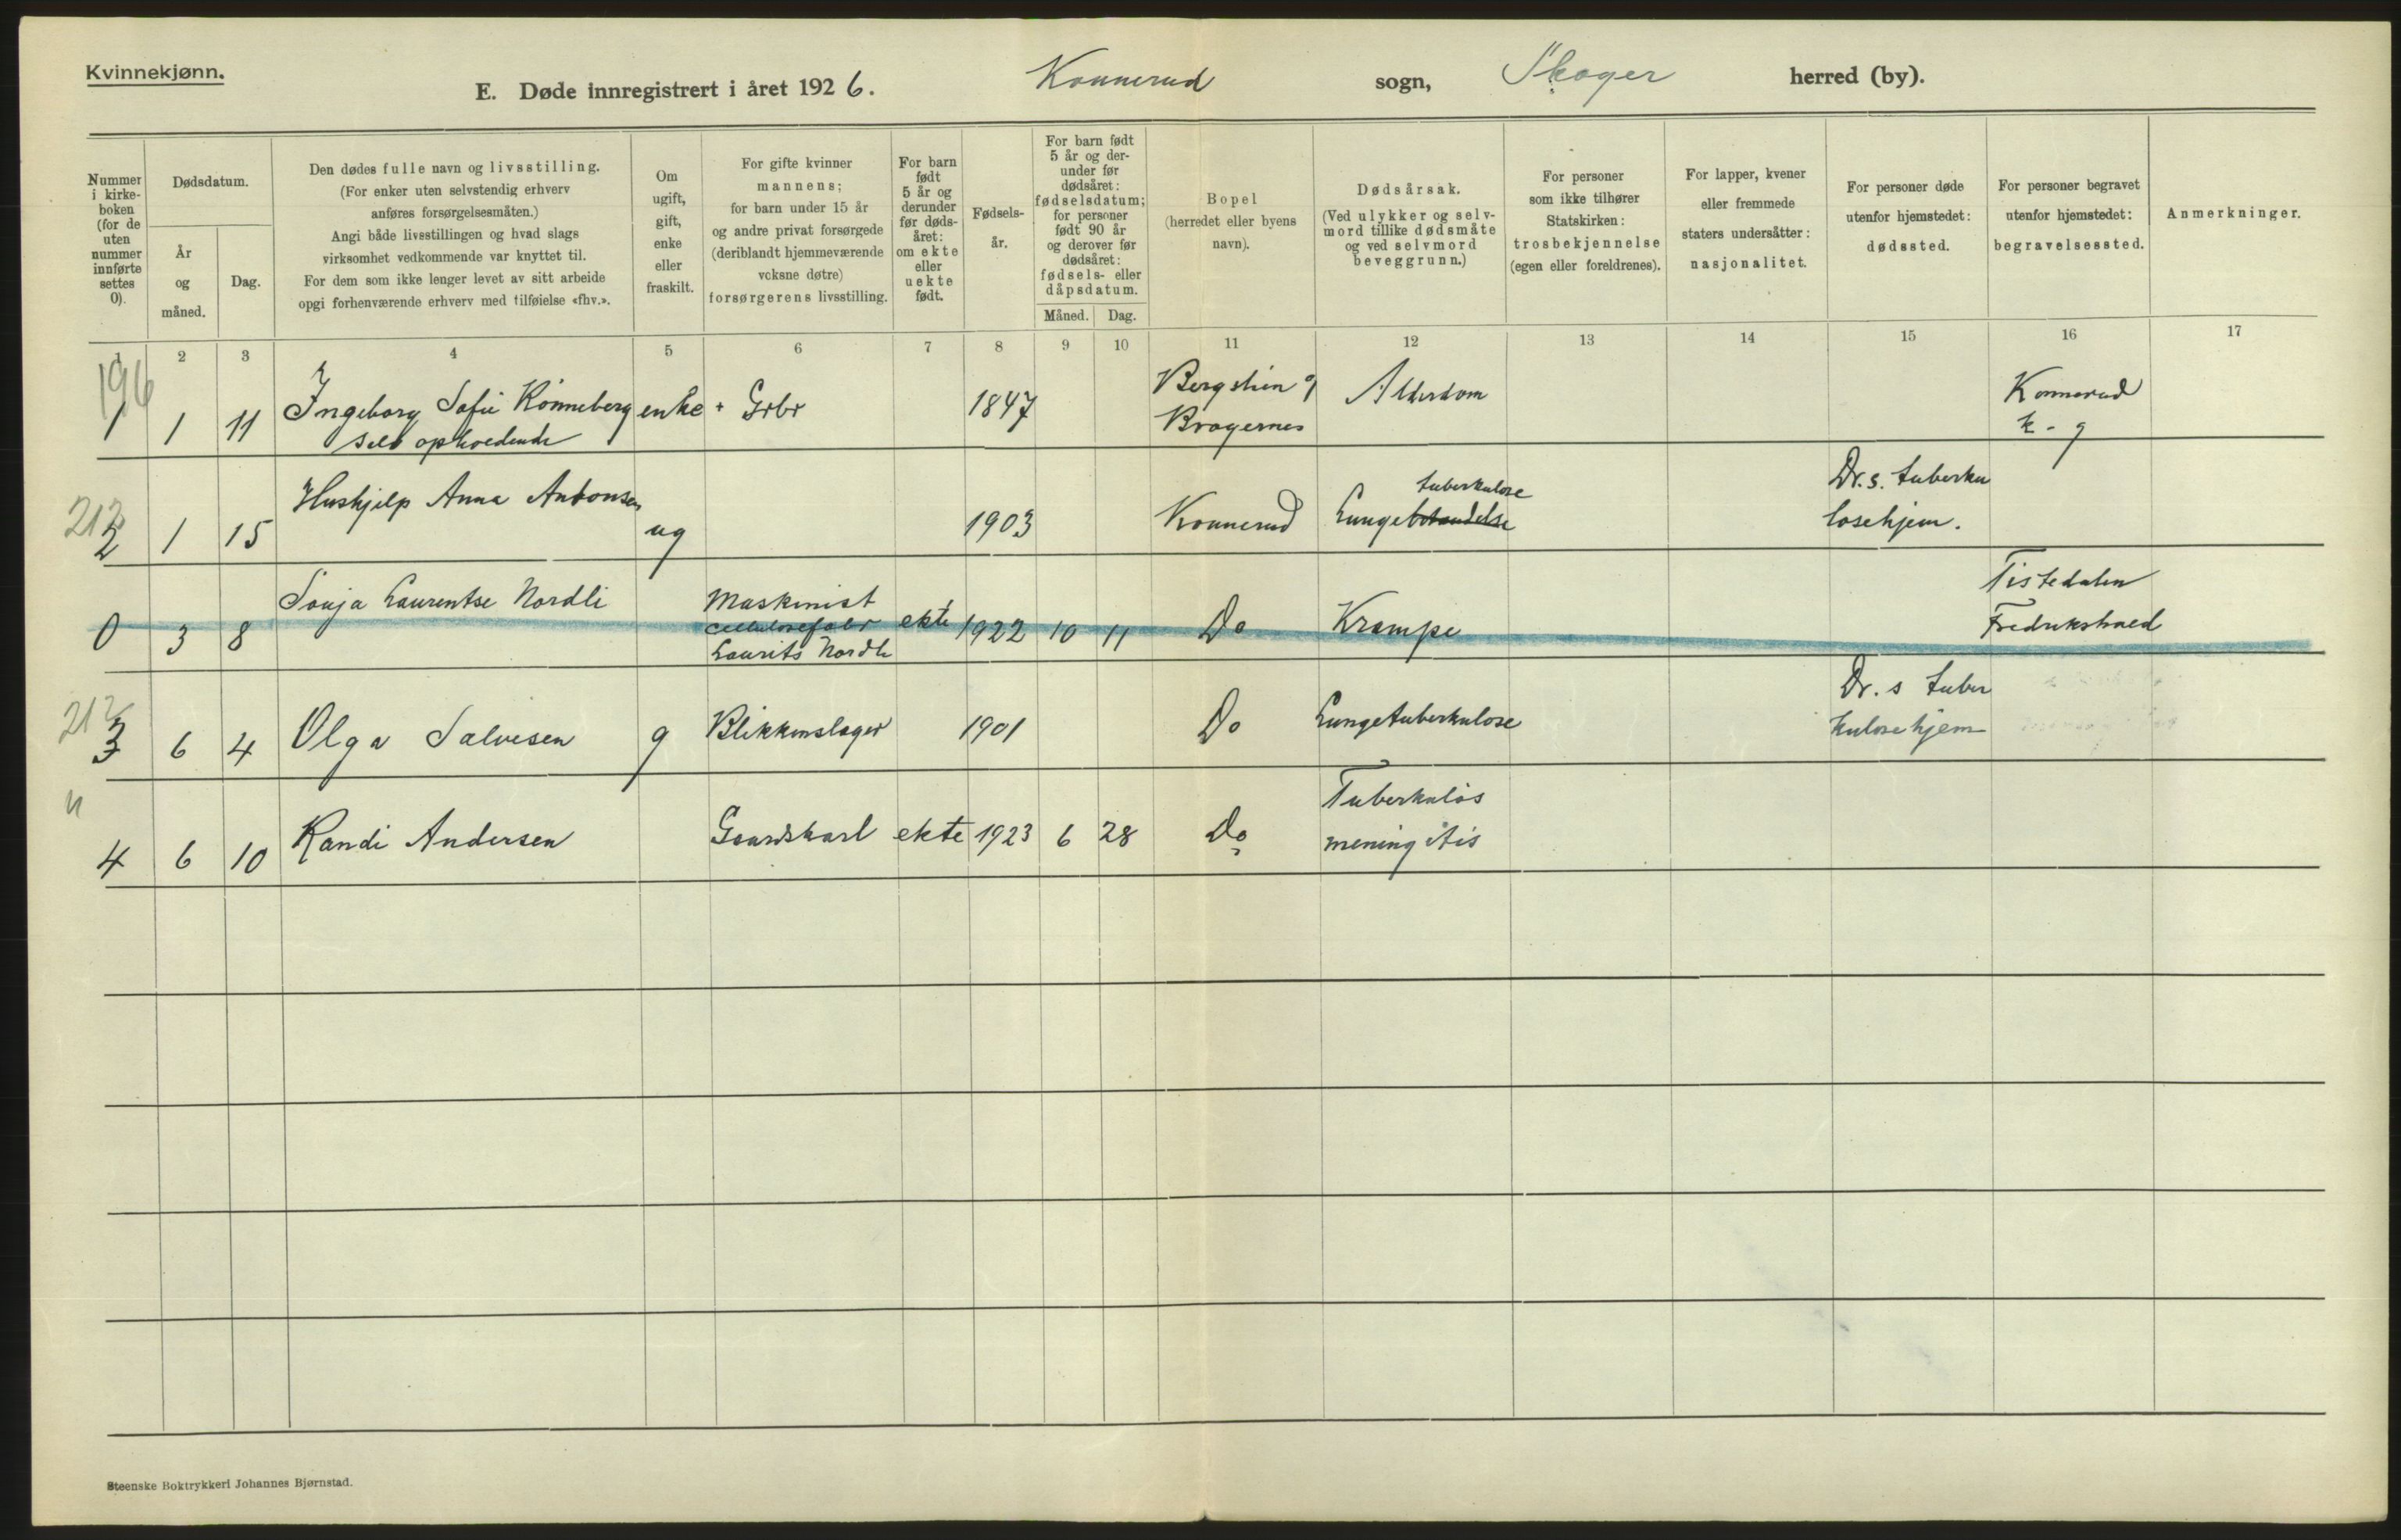 Kvinnekjønn.
E. Døde innregistrert i året 1926. Konnerud sogn, Skoger herred (by).
Nummer i kirke-boken (for de uten nummer innførte settes 0).
Dødsdatum.
År og måned.
Dag.
Den dødes fulle navn og livsstilling.
(For enker uten selvstendig erhverv
anføres forsørgelsesmåten.)
Angi både livsstillingen og hvad slags
virksomhet vedkommende var knyttet til.
For dem som ikke lenger levet av sitt arbeide
opgi forhenværende erhverv med tilføielse «fhv.».
Om ugift, gift, enke eller fraskilt.
For gifte kvinner
mannens;
for barn under 15 år
og andre privat forsørgede
(deriblandt hjemmeværende
voksne døtre)
forsørgerens livsstilling.
For barn født 5 år og derunder før døds-året: om ekte eller uekte født.
Fødsels-år.
For barn født 5 år og der-under før dødsåret: fødselsdatum; for personer født 90 år og derover før dødsåret: fødsels- eller dåpsdatum.
Måned. Dag.
Bopel
(herredet eller byens
navn).
Dødsårsak.
(Ved ulykker og selv-
mord tillike dødsmåte
og ved selvmord
beveggrunn.)
For personer
som ikke tilhører
Statskirken:
trosbekjennelse
(egen eller foreldrenes).
For lapper, kvener
eller fremmede
staters undersåtter:
nasjonalitet.
For personer døde
utenfor hjemstedet:
dødssted.
For personer begravet
utenfor hjemstedet:
begravelsessted.
Anmerkninger.
1 2 3 4 5 6 7 8 9 10 11 12 13 14 15 16 17
196
1 1 11 Ingeborg Sofie Rönneberg enke + Grbr 1847 Alderdom Konnerud
Bragernes k - g
212
2 1 15 Hushjelp Anna Antonsen ug 1903 Konnerud Lunge tuberkulose Dr.s. tuberku
losehjem.
0 3 8 Sonja Laurentse Nordli Maskinist ekte 1922 10 11 Do Krampe Tistedalen
Cellulosefabr Fredrikshald
Laurits Nordli
212
3 6 4 Olga Salvesen g Blikkenslager 1901 Do Lungetuberkulose Dr. s tuber
kulosehjem
4 6 10 Randi Andersen Gaardskarl ekte 1923 6 28 Do Tuberkuløs
meningitis
Steenske Boktrykkeri Johannes Bjørnstad.